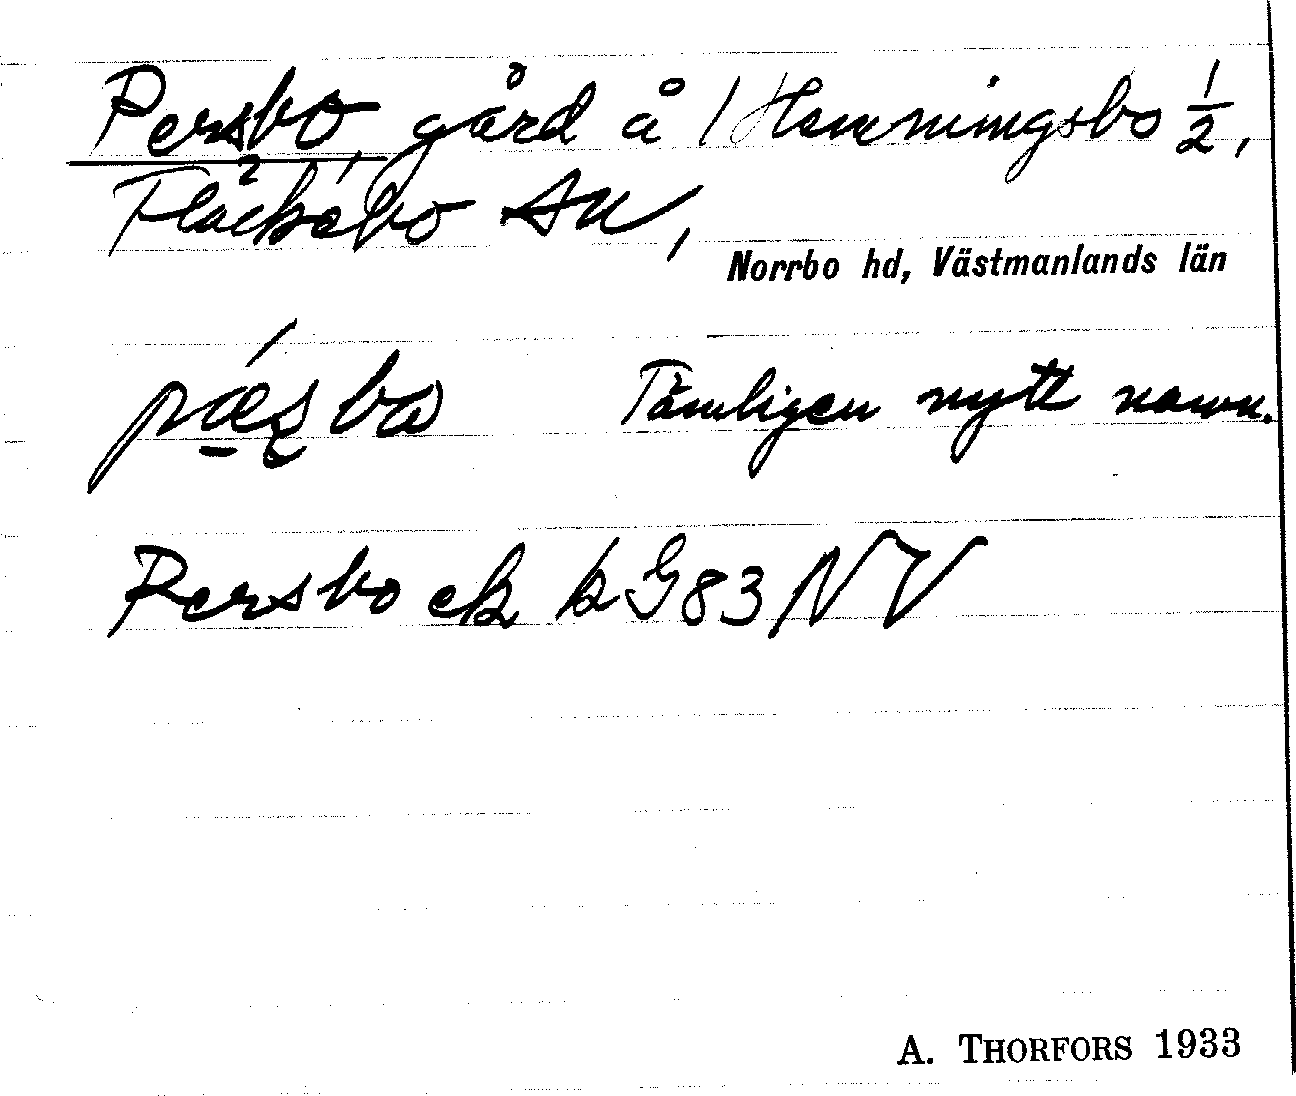 Persbo, gård å 1 Hemmingsbo 1/2,
Fläckebo sn,
Norrbo hd, Västmanlands län
pæ̠ʂba Tämligen nytt namn.
Persbo ek bG83NV
A. THORFORS 1933